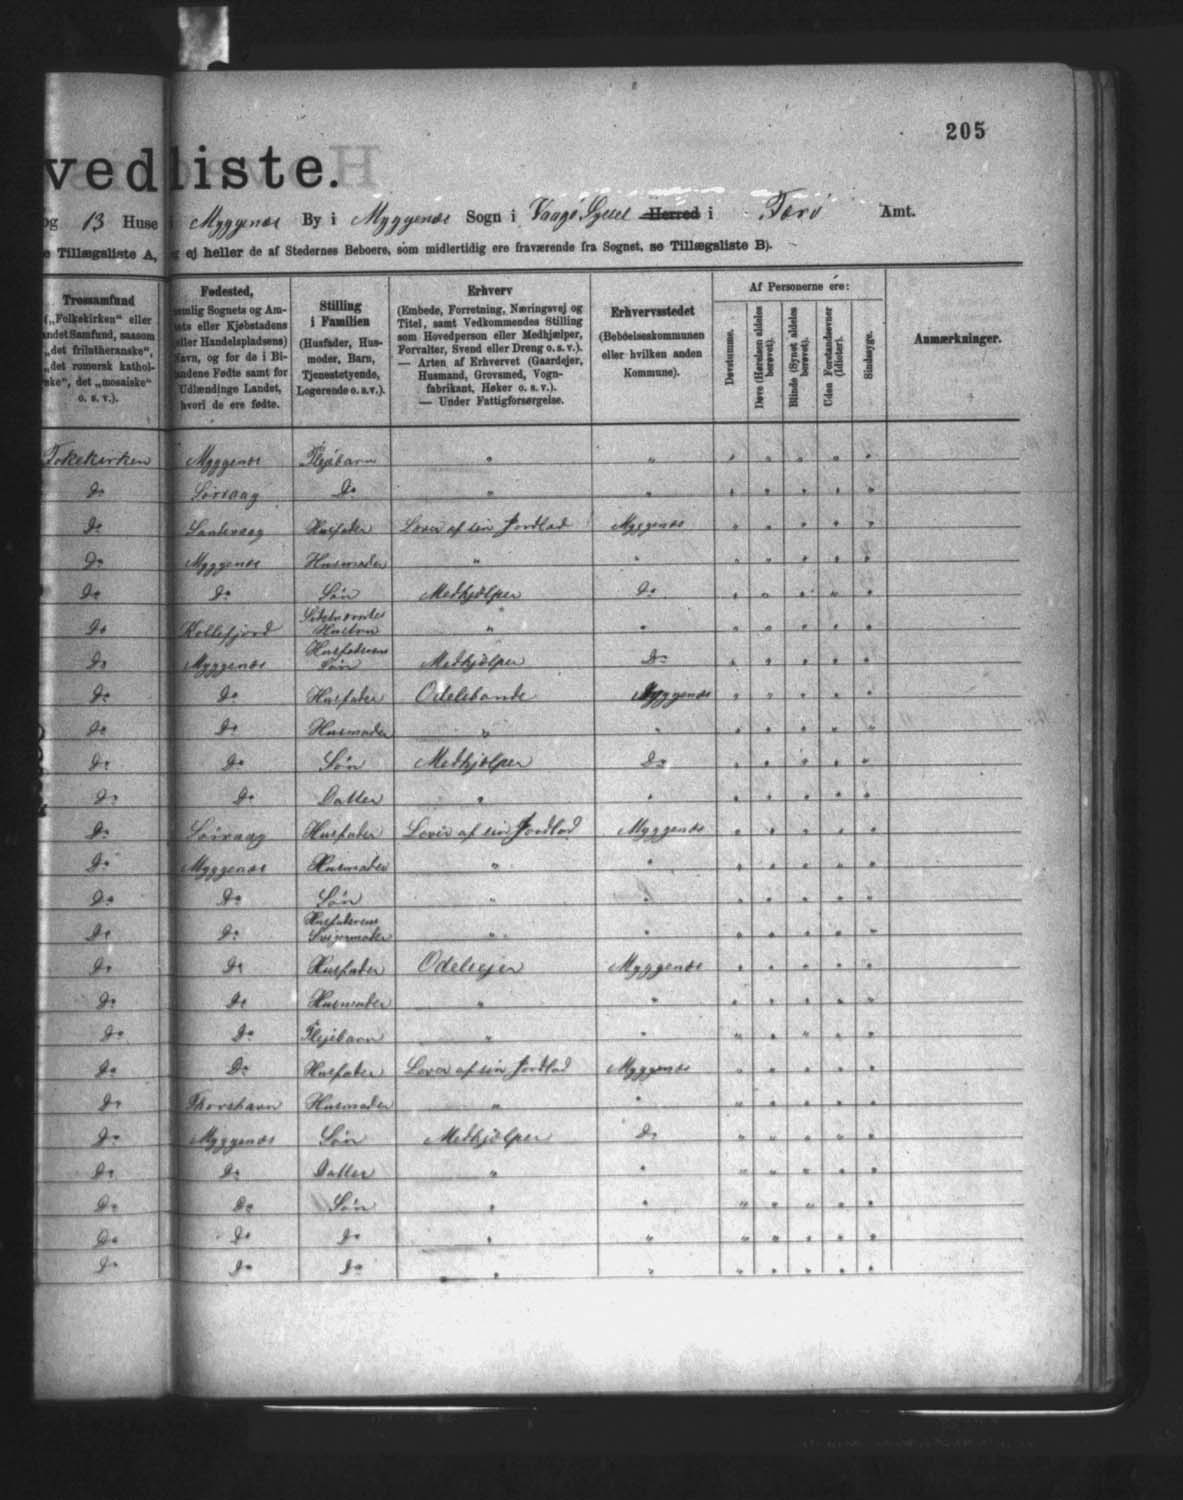 205
vedliste.
og 13 Huse i Myggenæs By i Myggenæs Sogn i Vaagø Syssel Herred i Færø Amt.
e Tillægsliste A, og ej heller de af Stedernes Beboere, som midlertidig ere fraværende fra Sognet, se Tillægsliste B).
Trossamfund
(„Folkekirken“ eller
andet Samfund, saasom
„det frilutheranske“,
„det romersk kathol-
ske“, det „mosaiske“
o. s. v.).
Fødested,
nemlig Sognets og Am-
tets eller Kjøbstadens
(eller Handelspladsens)
Navn, og for de i Bi-
landene Fødte samt for
Udlændinge Landet,
hvori de ere fødte.
Stilling
i Familien
(Husfader, Hus-
moder, Barn,
Tjenestetyende,
Logerende o. s. v.).
Erhverv
(Embede, Forretning, Næringsvej og
Titel, samt Vedkommendes Stilling
som Hovedperson eller Medhjælper,
Forvalter, Svend eller Dreng o. s. v.).
— Arten af Erhvervet (Gaardejer,
Husmand, Grovsmed, Vogn-
fabrikant, Høker o. s. v.).
— Under Fattigforsørgelse.
Erhvervsstedet
(Beboelseskommunen
eller hvilken anden
Kommune).
Af Personerne ere:
Døvstumme.
Døve (Hørelsen aldeles
berøvet).
Blinde (Synet aldeles
berøvet).
Uden Forstandsevner
(Idioter).
Sindssyge.
Anmærkninger.
Folkekirken Myggenæs Plejebarn " " " " " " "
Do Sørvaag Do " " " " " " "
Do Sandevaag Husfader Lever af sin Jordlod Myggenæs " " " " "
Do Myggenæs Husmoder " " " " " " "
Do Do Søn Medhjælper Do " " " " "
Do Kollefjord Hustru " " " " " " "
Do Myggenæs Husfaderens Søn Medhjælper Do " " " " "
Do Do Husfader Odelsbonde Myggenæs " " " " "
Do Do Husmoder " " " " " " "
Do Do Søn Medhjælper Do " " " " "
Do Do Datter " " " " " " "
Do Sørvaag Husfader Lever af sin Jordlod Myggenæs " " " " "
Do Myggenæs Husmoder " " " " " " "
Do Do Søn " " " " " " "
Do Do Husfaderens Svigermoder " " " " " " "
Do Do Husfader Odelsejer Myggenæs " " " " "
Do Do Husmoder " " " " " " "
Do Do Plejebarn " " " " " " "
Do Do Husfader Lever af sin Jordlod Myggenæs " " " " "
Do Thorshavn Husmoder " " " " " " "
Do Myggenæs Søn Medhjælper Do " " " " "
Do Do Datter " " " " " " "
Do Do Søn " " " " " " "
Do Do Do " " " " " " "
Do Do Do " " " " " " "